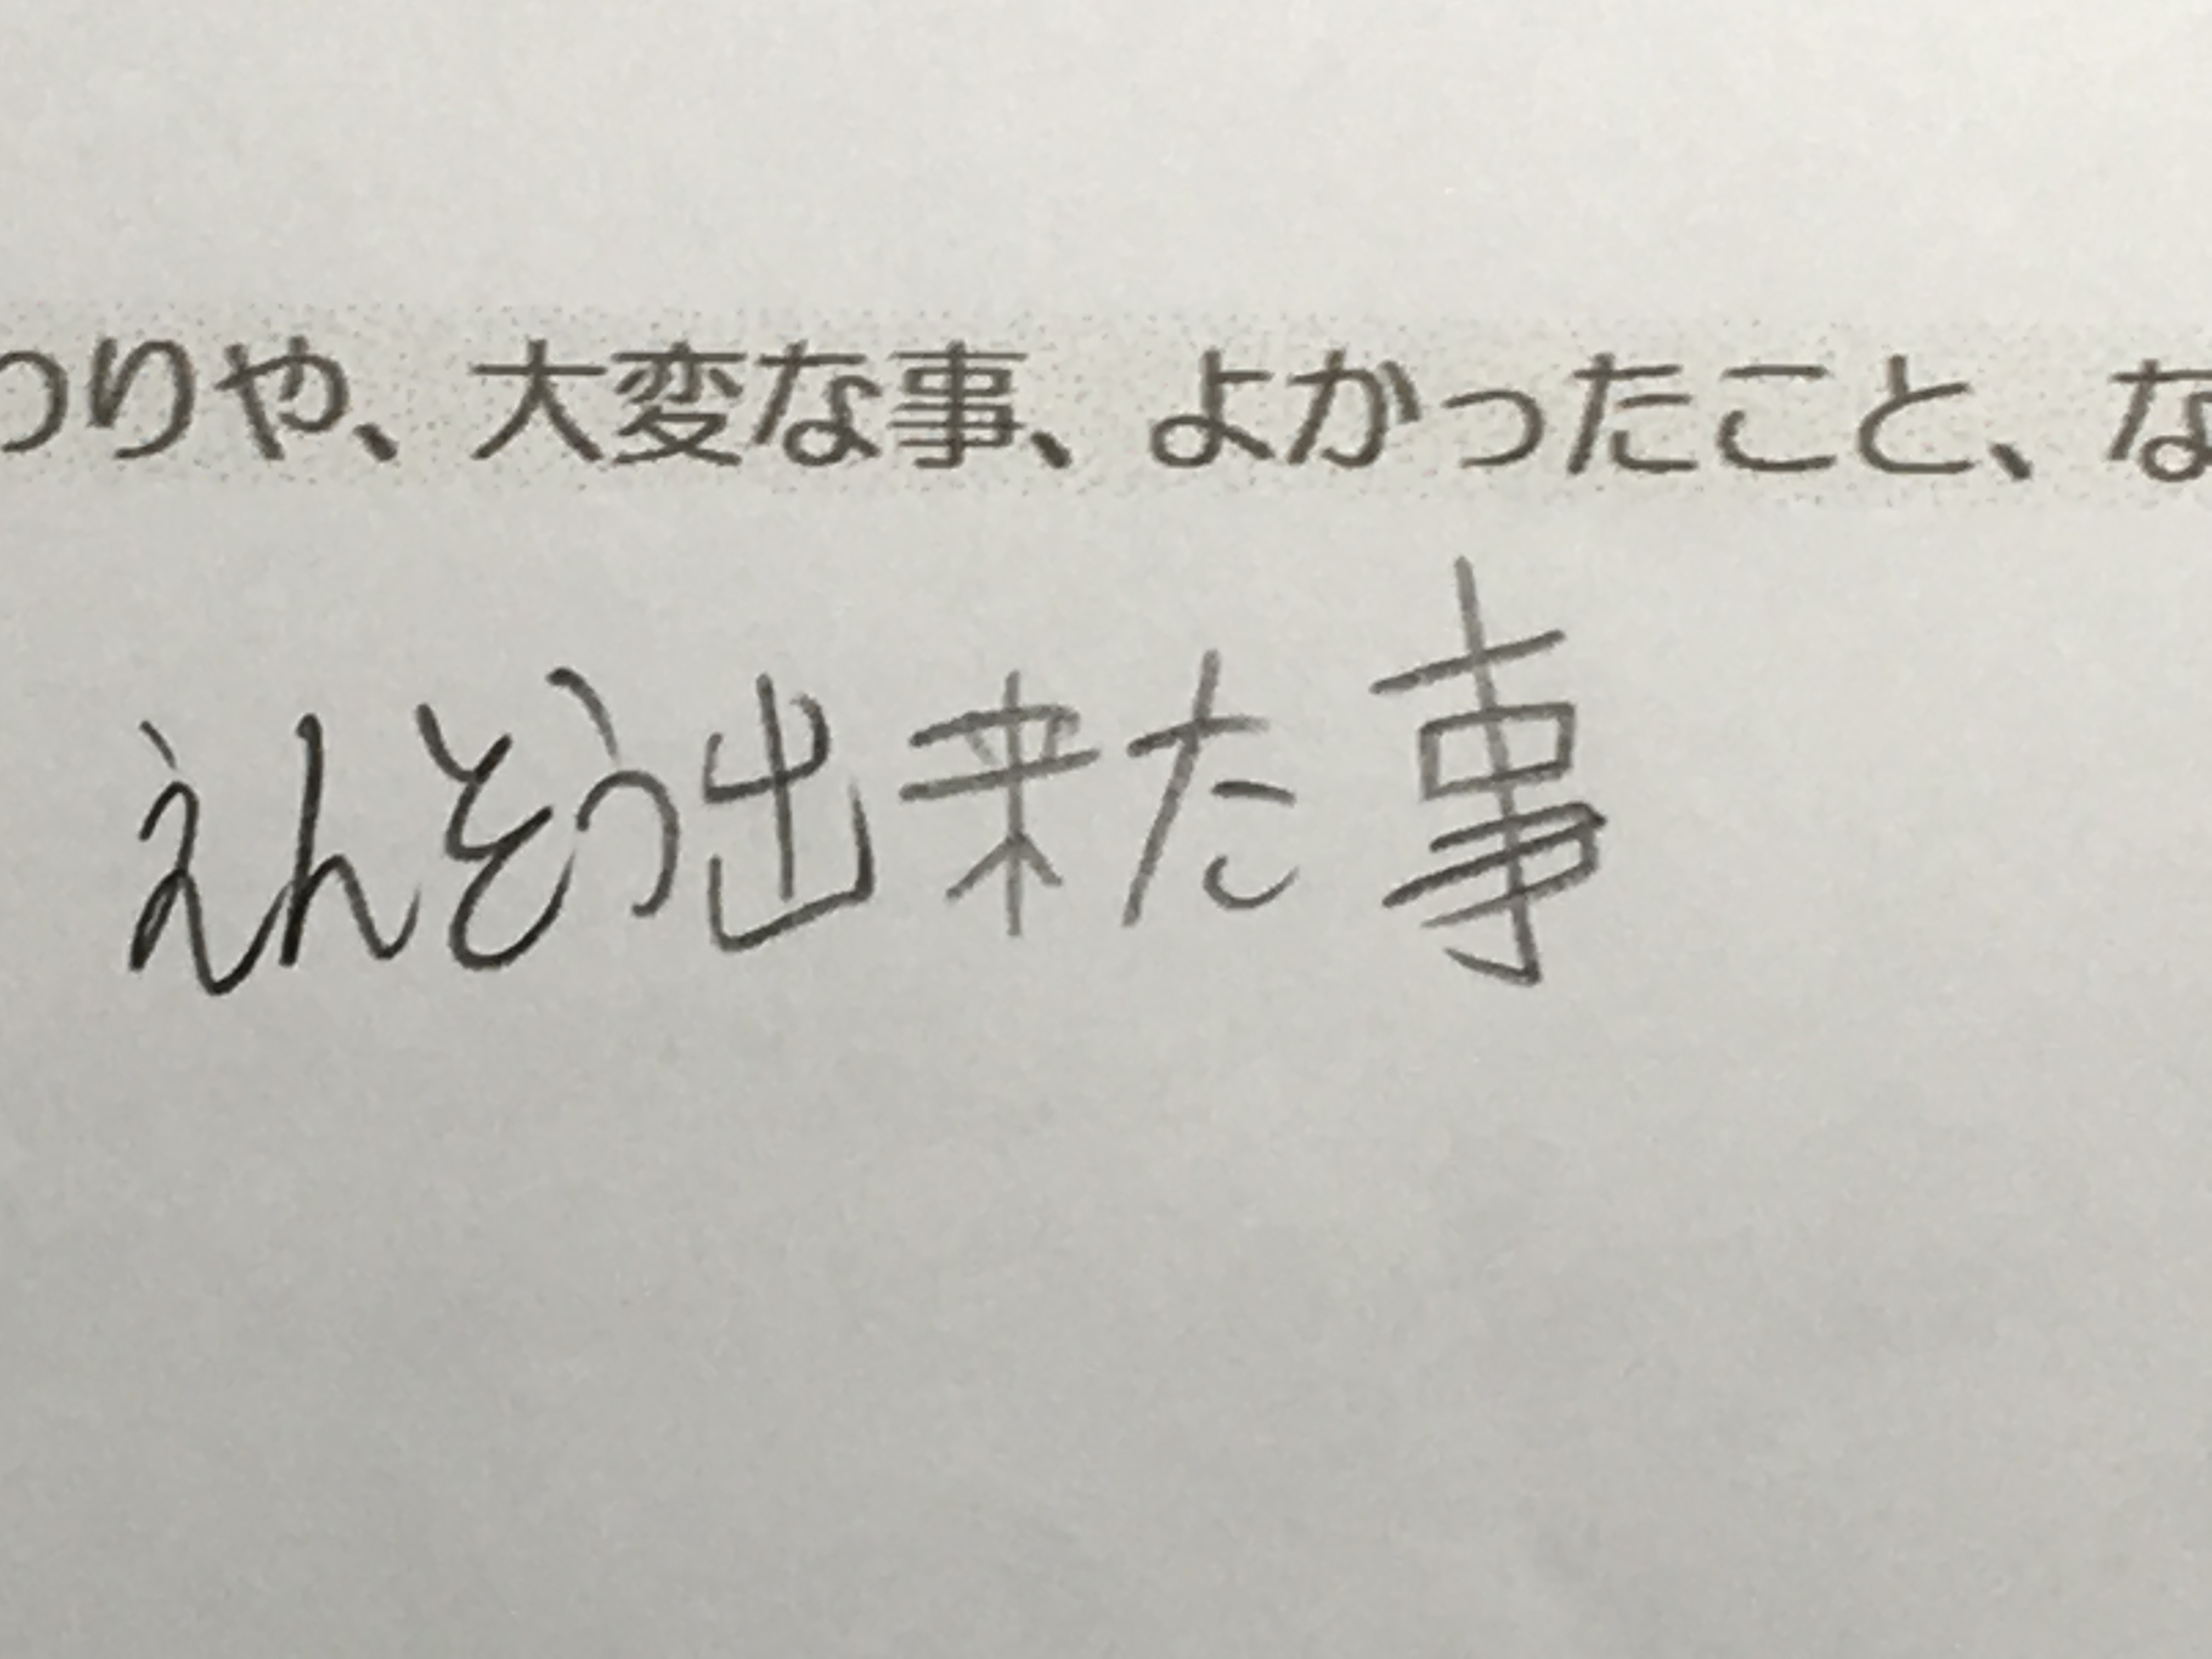 つりや、大変な事、よかったこと、な
えんそう出来た事